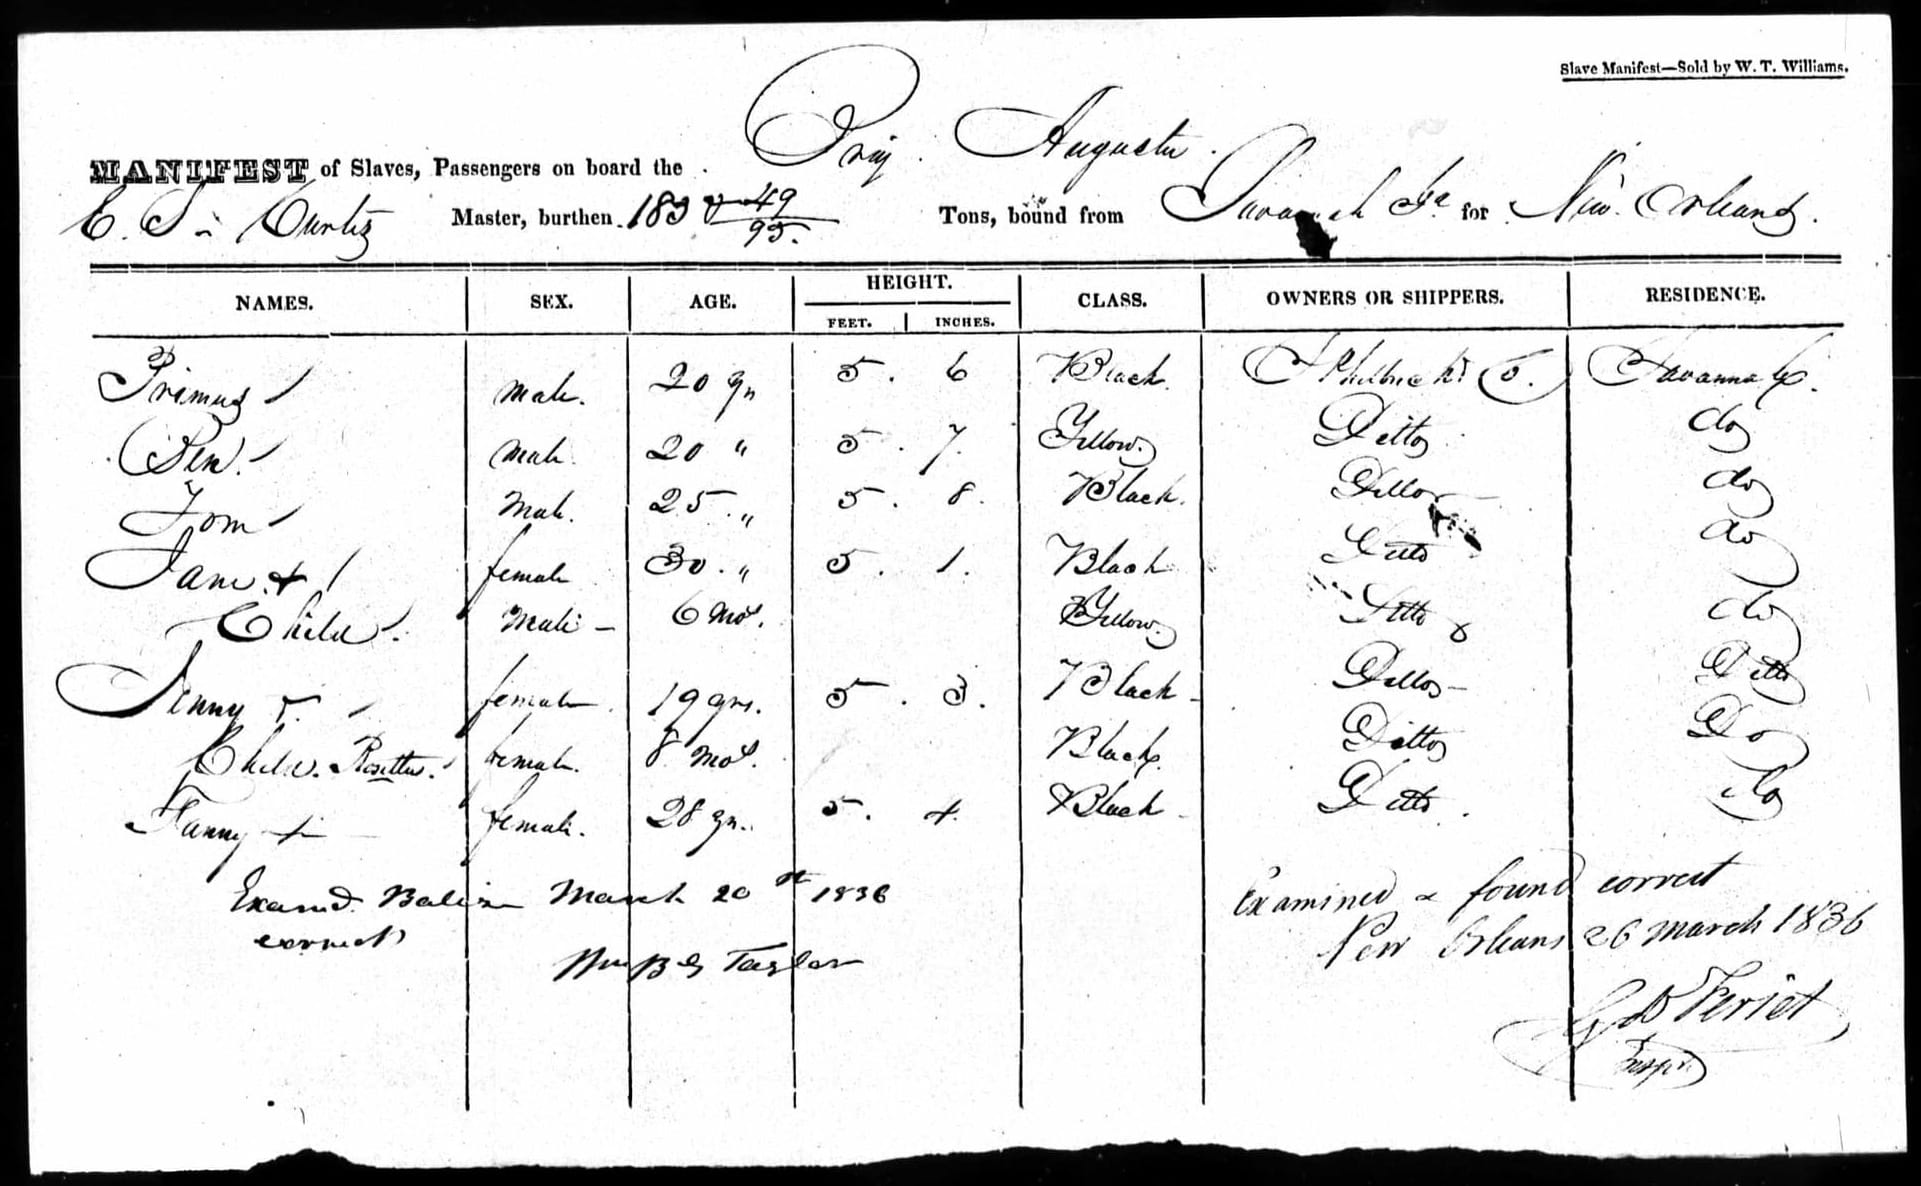 Slave Manifest—Sold by W. T. Williams.
MANIFEST of Slaves, Passengers on board the Brig Augusta.
E. S. Curtiz Master, burthen 183 49/95. Tons, bound from Savannah Ga for New Orleans.
NAMES. SEX. AGE. HEIGHT. CLASS. OWNERS OR SHIPPERS. RESIDENCE.
FEET. INCHES.
Primus male. 20 yrs 5. 6 Black. Savannah.
Ben. male. 20 " 5. 7. Yellow. Ditto do
Tom male. 25 " 5. 8. Black. Ditto do
Jane & female 30 " 5. 1. Black Ditto do
Child. Male 6 mos. Yellow. Ditto do
Jenny & female 19 yrs. 5. 3. Black Ditto Ditto
Child. Rosetta. female. 8 mos. Black. Ditto Do
Fanny + female. 28 yrs. 5. 4. Black Ditto. do
Examd. Balize March 20th 1836
correct
Wm B G Taylor
Examined & found correct
New Orleans 26 March 1836
Feriet
Inspr